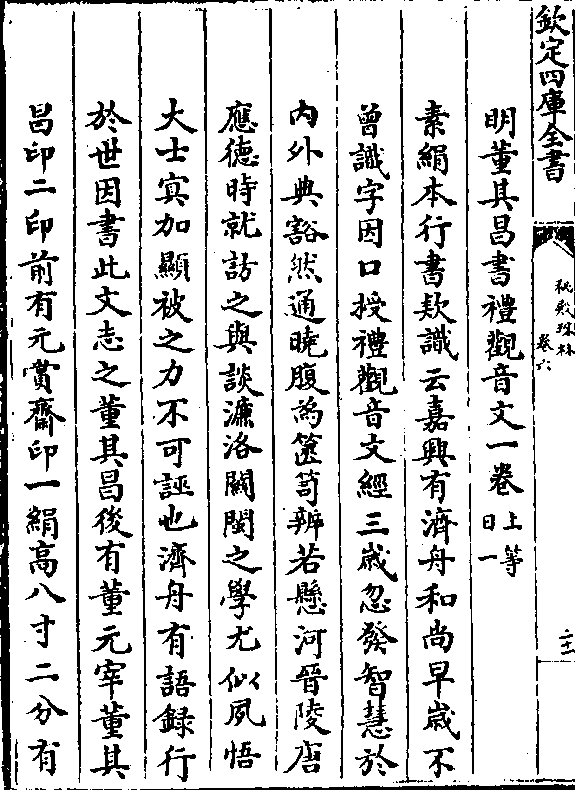 欽定四庫全書
秘殿珠林
卷六
二十
明董其昌書禮觀音文一卷 上等
日一
素絹本行書欵識云嘉興有濟舟和尚早歲不
曾識字因口授禮觀音文經三歲忽發智慧於
内外典豁然通曉腹為篋笥辨若懸河晉陵唐
應德時就訪之與談濂洛闗閩之學尤似夙悟
大士寘加顯被之力不可誣也濟舟有語録行
於世因書此文志之董其昌後有董元宰董其
昌印二印前有元賞齋印一絹高八寸二分有